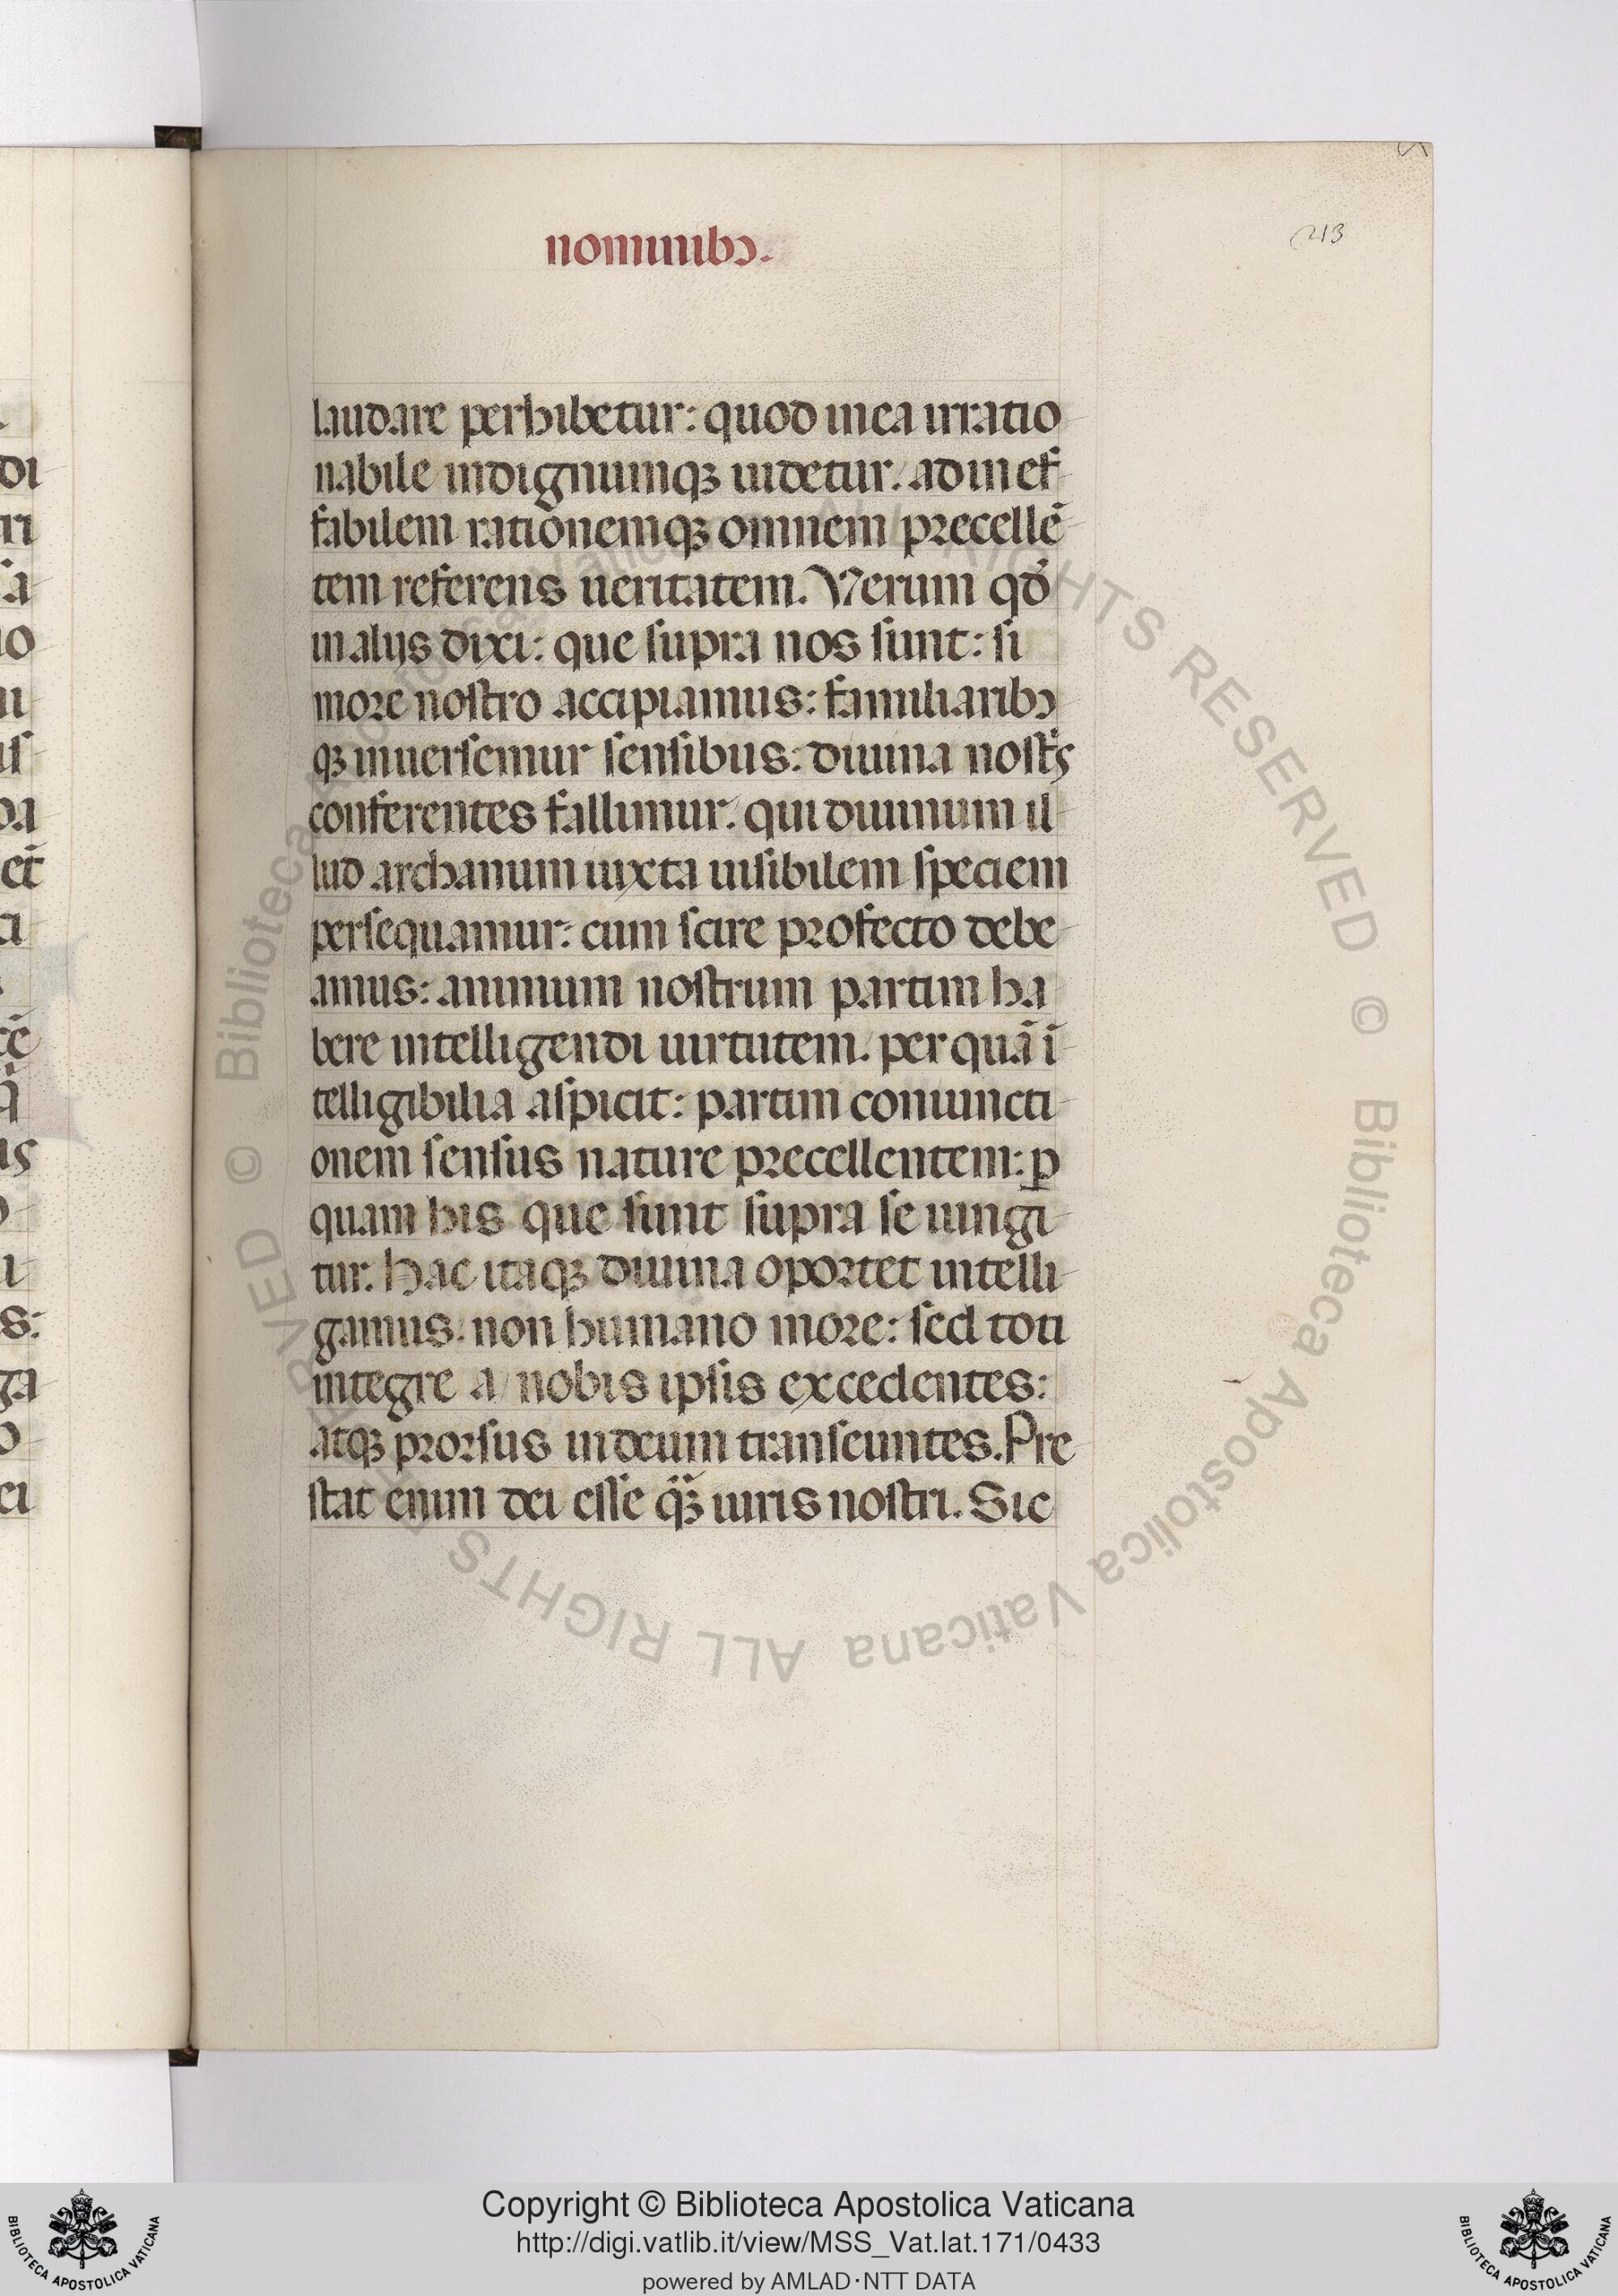 nominibꝫ.
213
laudare perhibetur: quod in ea irratio
nabile indignumqꝫ uidetur. ad inef
fabilem rationemqꝫ omnem precellē
tem referens ueritatem. Verum qđ
in alijs dixi: que supra nos sunt: si
more nostro accipiamus: familiaribꝫ
qꝫ inuersemur sensibus: diuina nostꝛ̄s
conferentes fallimur. qui diuinum il
lud archanum iuxta uisibilem speciem
persequamur: cum scire profecto debe
amus: animum nostrum partim ha
bere intelligendi uirtutem. per quā ī
telligibilia aspicit: partim coniuncti
onem sensus nature precellentem: ꝑ
quam his que sunt supra se iungi
tur. Hac itaqꝫ diuina oportet intelli
gamus. non humano more: sed toti
integre a nobis ipsis excedentes:
atqꝫ prorsus in deum transeuntes. Pre
stat enim dei esse qꝫ̄ iuris nostri. Sic
Copyright © Biblioteca Apostolica Vaticana
http://digi.vatlib.it/view/MSS_Vat.lat.171/0433
powered by AMLAD·NTT DATA
BIBLIOTECA APOSTOLICA VATICANA
BIBLIOTECA APOSTOLICA VATICANA
© Biblioteca Apostolica Vaticana ALL RIGHTS RESERVED © Biblioteca Apostolica Vaticana ALL RIGHTS RESERVED